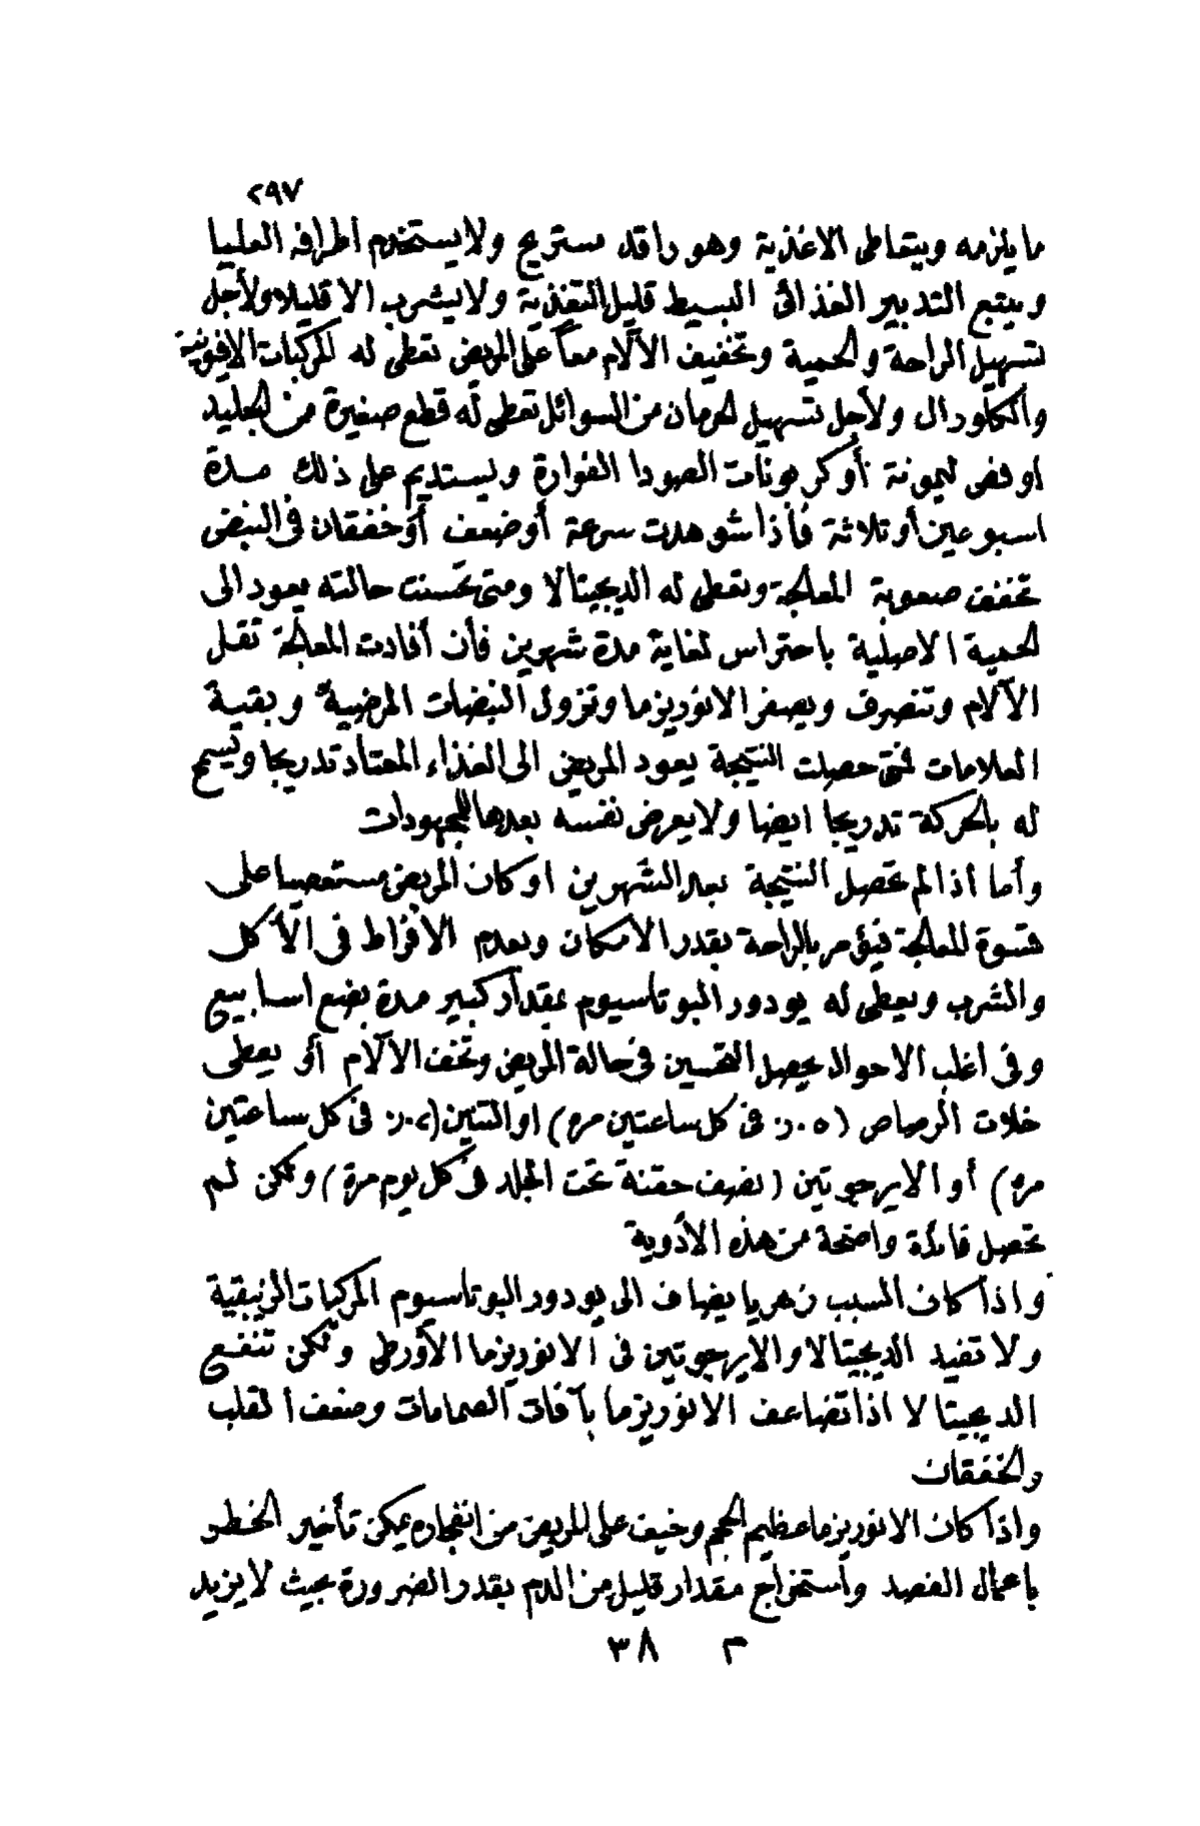 ٢٩٧
ما يلزمه ويتعاطى الاغذية وهو راقد مستريح ولا يستخدم اطرافه العليا
ويتبع التدبير الغذائى البسيط قليل التغذية ولا يشرب الا قليلا ولأجل
تسهيل الراحة والحمية وتخفيف الآلام معاً على المريض تعطى له المركبات الافيونية
والكلورال ولأجل تسهيل الحرمان من السوائل تعطى له قطع صغيرة من الجليد
او فص ليمونة أو كربونات الصودا الفوارة ويستديم على ذلك مدة
اسبوعين أو ثلاثة فأذا شوهدت سرعة أو ضعف أو خفقان فى النبض
تخفف صعوبة المعالجة وتعطى له الديجيتالا ومتى تحسنت حالته يعود الى
الحمية الاصلية باحتراس لغاية مدة شهرين فأن أفادت المعالجة تقل
الآلام وتنصرف ويصغر الانوريزما وتزول النبضات المرضية وبقية
العلامات فمتى حصلت النتيجة يعود المريض الى الغذاء المعتاد تدريجا ويسمح
له بالحركة تدريجا ايضا ولا يعرض نفسه بعدها للمجهودات
وأما أذا لم تحصل النتيجة بعد الشهرين او كان المريض مستعصيا على
قسوة المعالجة فيؤمر بالراحة بقدر الامكان وبعدم الافراط فى الأكل
والشرب ويعطى له يودور البوتاسيوم بمقدار كبير مدة بضع اسابيع
وفى اغلب الاحوال يحصل التحسين فى حالة المريض وتخف الآلام أو يعطى
خلات الرصاص (٠٥ر٠ فى كل ساعتين مره) او التنين (٠٢ر٠ فى كل ساعتين
مره) أو الايرجوتين (نصف حقنة تحت الجلد فى كل يوم مرة) ولكن لم
تحصل فائدة واضحة من هذه الأدوية
واذا كان السبب زهريا يضاف الى يودور البوتاسيوم المركبات الزئبقية
ولا تفيد الديجيتالا والايرجوتين فى الانوريزما الأورطى ولكن تنفع
الديجيتالا اذا تضاعف الانوريزما بآفات الصمامات وضعف القلب
والخفقان
واذا كان الانوريزما عظيم الحجم وخيف على المريض من انفجاره يمكن تأخير الخطر
باعمال الفصد وأستخراج مقدار قليل من الدم بقدر الضرورة بحيث لا يزيد
م ٣٨